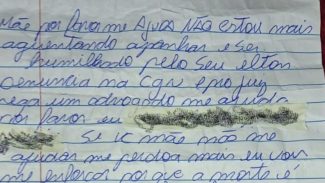 Mãe por favor me Ajuda NÃO estou mais
aguentando apanhar e ser
humilhado pelo seu elton
denuncia na
um advogando me ajuda
por favor eu
se ic mãe não me
ajudar me perdoa mais eu vou
me enforcar porque a morte é